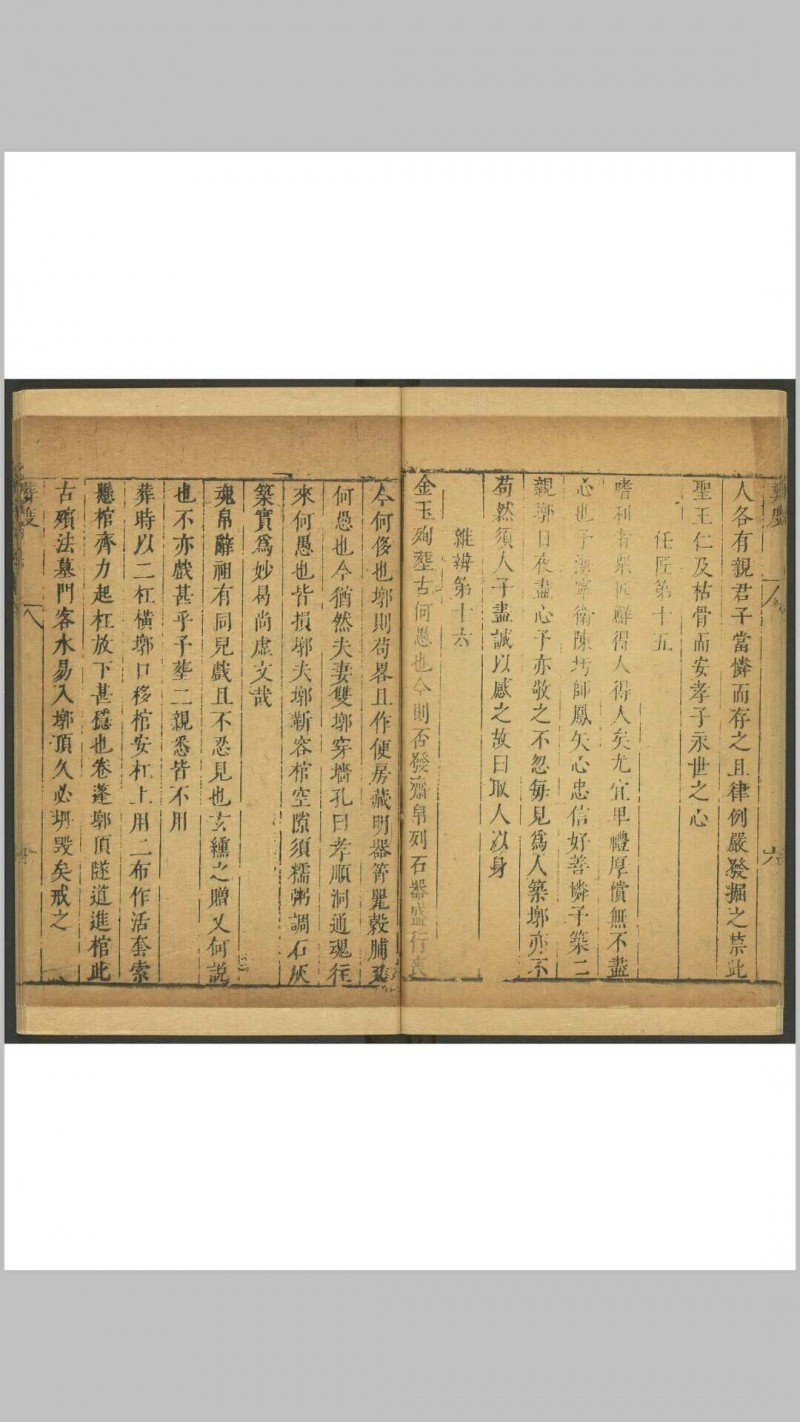 人各有親君子當憐而存之且律例嚴發掘之禁此
聖王仁及枯骨而安孝子永世之心
任匠第十五
嗜利者衆匠鮮得人得人矣尤宜卑禮厚償無不盡
心也予濠寧衛陳圬師鳳矢心忠信好善憐予築二
親墎日夜盡心予亦敬之不忍毎見爲人築墎亦不
苟然須人子盡誠以感之故曰取人以身
雜辨第十六
金玉殉塟古何愚也今則否發齋帛列石器盛行喪
今何侈也墎則苟畧且作便房藏明器筲甖穀脯
何愚也今猶然夫妻雙墎穿墻孔曰孝順洞通魂往
來何愚也皆損墎夫墎斬容棺空隙須糯粥調石灰
築實爲妙曷尚虛文哉
魂帛辭祖有同兒戲且不忍見也玄纁之贈又何說
也不亦戲甚乎予塟二親悉皆不用
葬時以二杠橫墎口移棺安杠上用二布作活套索
懸棺齊力起杠放下甚穩也卷蓬墎頂隧道進棺此
古殯法墓門客水易入墎頂久必坍毀矣戒之
葬度
八